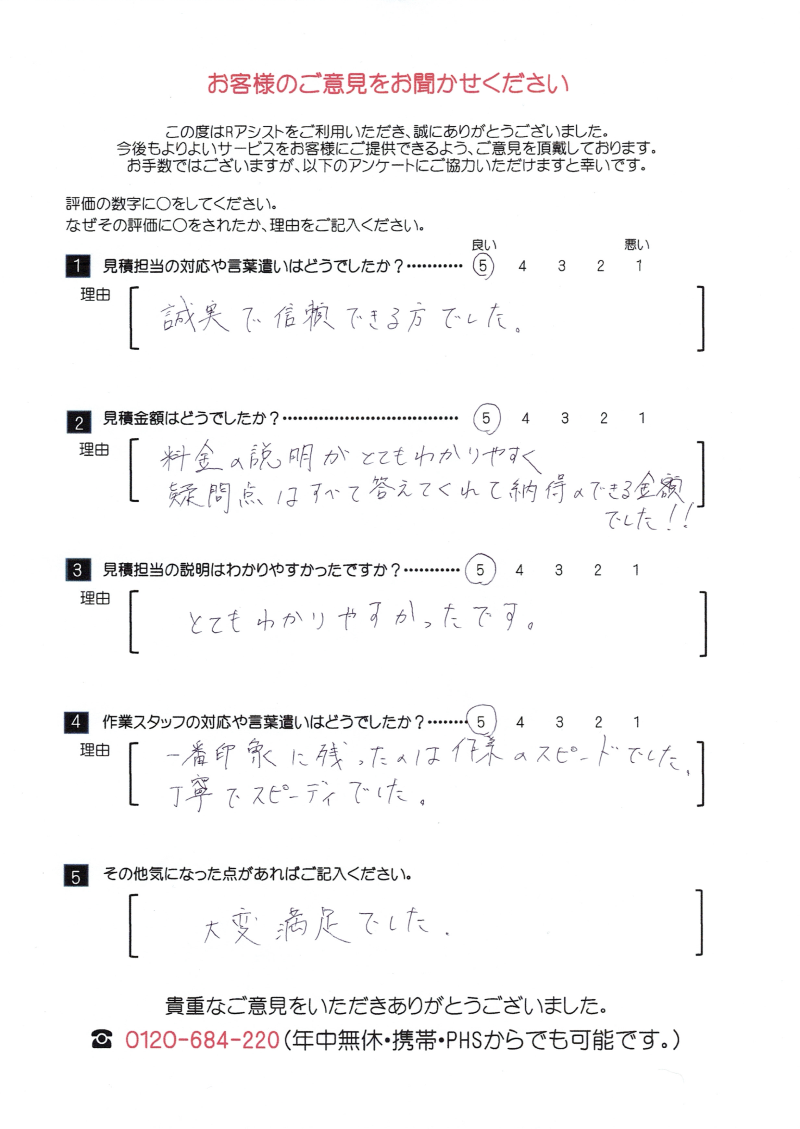 お客様のご意見をお聞かせください
この度はRアシストをご利用いただき、誠にありがとうございました。
今後もよりよいサービスをお客様にご提供できるよう、ご意見を頂戴しております。
お手数ではございますが、以下のアンケートにご協力いただけますと幸いです。
評価の数字に〇をしてください。
なぜその評価に〇をされたか、理由をご記入ください。
良い 悪い
1 見積担当の対応や言葉遣いはどうでしたか?………… 5 4 3 2 1
理由
誠実で信頼できる方でした。
2 見積金額はどうでしたか?………………………………… 5 4 3 2 1
理由
料金の説明がとてもわかりやすく
疑問点はすべて答えてくれて納得のできる金額
でした!!
3 見積担当の説明はわかりやすかったですか?………… 5 4 3 2 1
理由
とてもわかりやすかったです。
4 作業スタッフの対応や言葉遣いはどうでしたか?……… 5 4 3 2 1
理由
一番印象に残ったのは作業のスピードでした、
丁寧でスピーディでした。
5 その他気になった点があればご記入ください。
大変満足でした.
貴重なご意見をいただきありがとうございました。
☎ 0120-684-220(年中無休・携帯・PHSからでも可能です。)